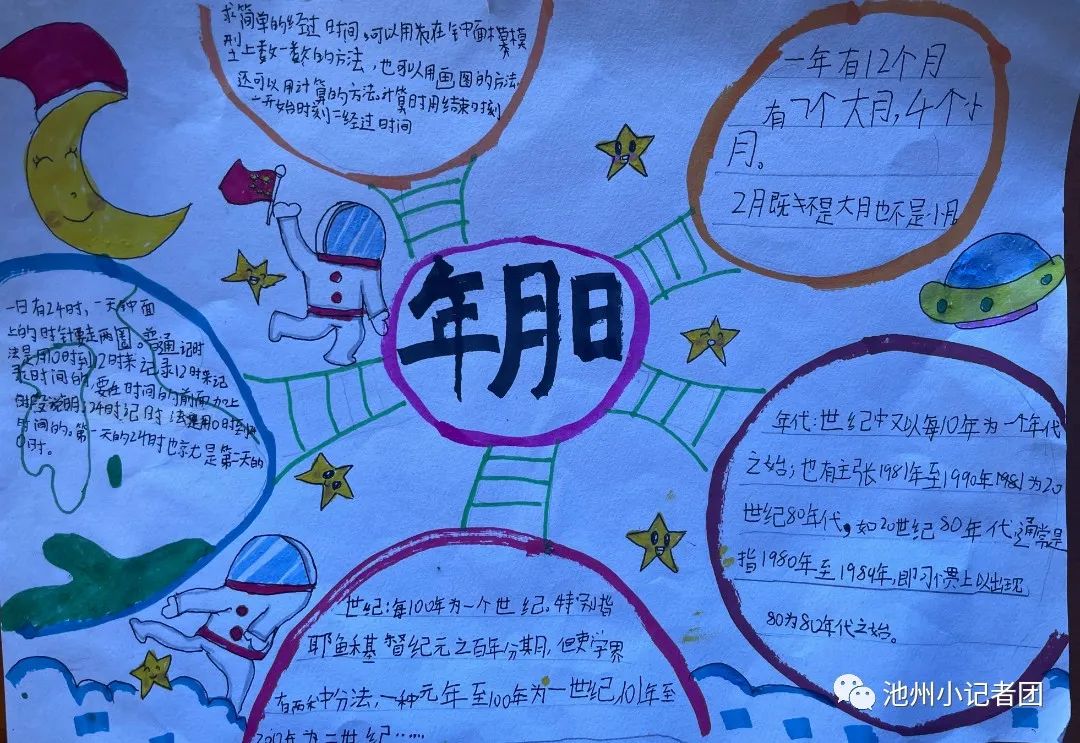 求简单的经过时间,可以用表在钟面模
型上数一数的方法,也可以用画图的方法,
还可以用计算的方法.计算时用结束时刻
-开始时刻=经过时间
一年有12个月
有7个大月,4个小
月。
2月既不是大月也不是小月
年月日
一日有24时,一天钟面
上的时针要走两圈。普通记时
法是用0时到12时来记录12时来记
录时间的,要在时间的前面加上
时段说明,24时记时法是用0时
时间的。第一天的24时也就是第二天的
0时。
年代:世纪中又以每10年为一个年代
之始;也有主张1981年至1990年1981为20
世纪80年代,如20世纪80年代通常是
指1980年至1989年,即习惯上以出现
80为年代之始。
世纪:每100年为一个世纪.特别指
耶稣基督纪元之百年分期,但史学界
有两种分法,一种元年至100年为一世纪,101年至
年为二世纪……
池州小记者团